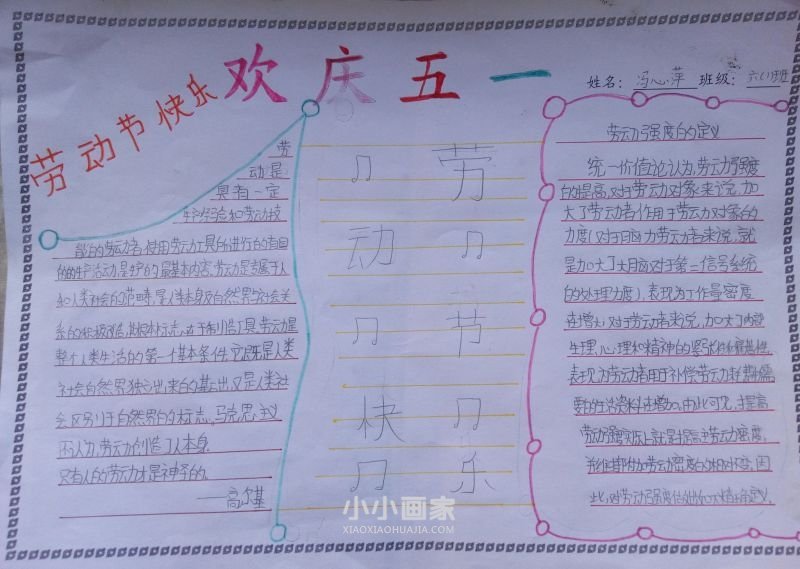 欢庆五一
劳动节快乐
姓名：冯心萍 班级：六(1)班
劳
动是
具有一定
生产经验和劳动技
能的劳动者,使用劳动工具所进行的有目
的的生产活动,是生产的最基本内容,劳动是专属于人
和人类社会的范畴,是人类本身及自然界
系的积极改造,其根本标志,在于制造工具,劳动是
整个人类生活的第一个基本条件,它既是人类
社会自然界独立出来的基础,又是人类社
会区别于自然界的标志。马克思主义
认为,劳动创造了人本身。
只有人的劳动才是神圣的。
——高尔基
♫ 劳
动 ♫
♫ 节
快 ♫
♫ 乐
劳动强度的定义
统一价值论认为,劳动强度
的提高,对于劳动对象来说,加
大了劳动者作用于劳动对象的
力度(对于脑力劳动者来说,就
是加大了大脑对于第二信号系统
的处理力度),表现为工作量密度
在增加;对于劳动者来说,加大了内在
生理,心理和精神的紧张
表现为劳动者用于补偿劳动耗费所需
要的生活资料在增加。由此可见,提高
劳动强度实际上就是提高劳动密度,
劳动密度的相对度,因
此,对劳动强度
小小画家
XIAOXIAOHUAJIA.COM